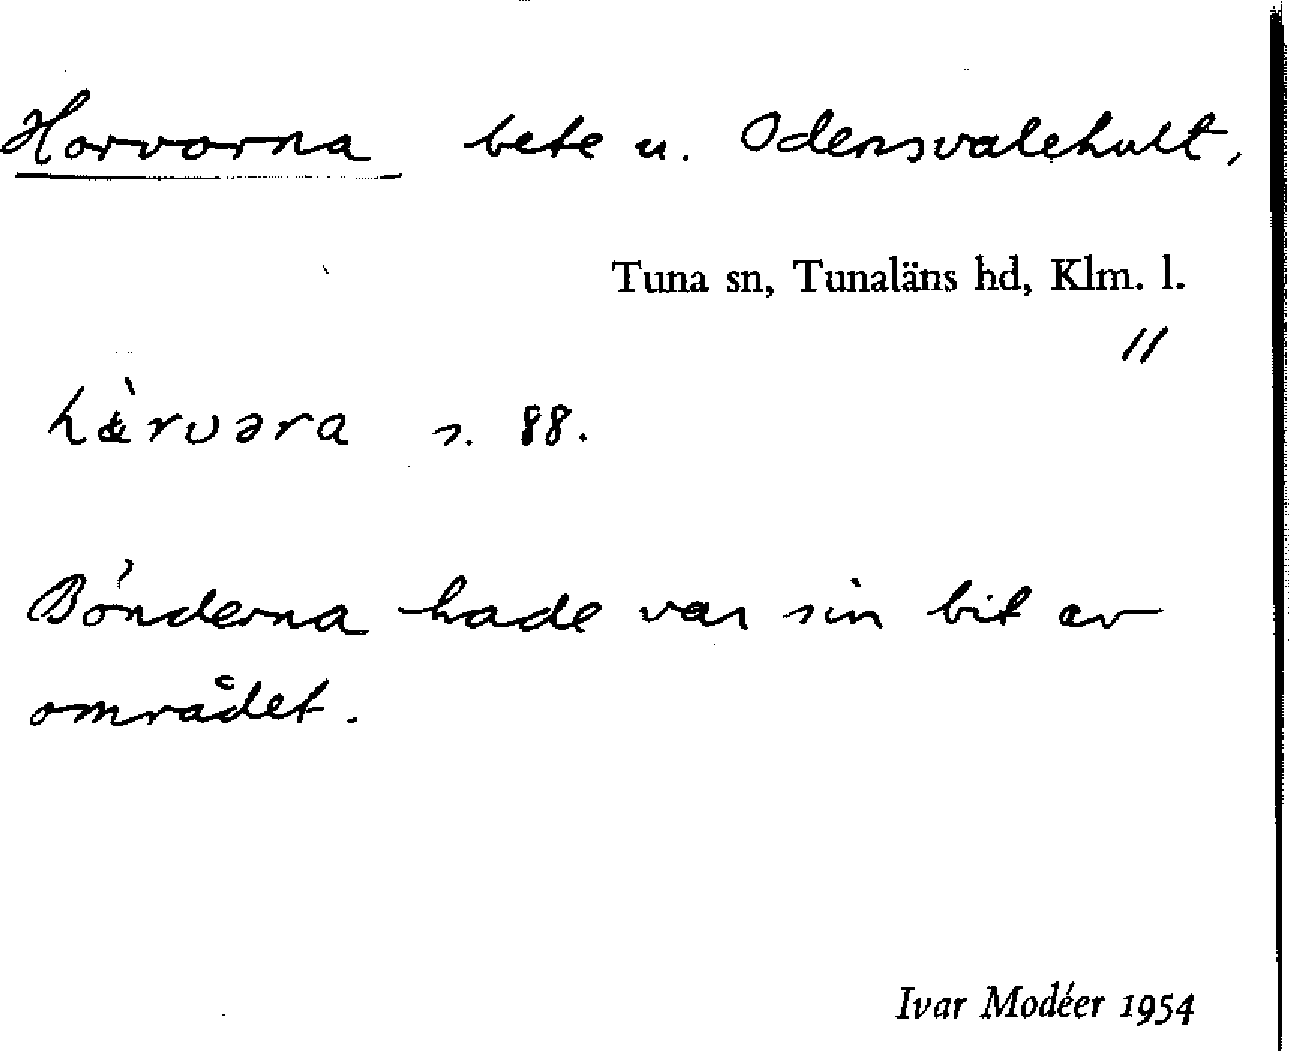 Horvorna bete u. Odensvalehult,
Tuna sn, Tunaläns hd, Klm. l.
"
s. 88.
Bönderna hade var sin bit av
området.
Ivar Modéer 1954